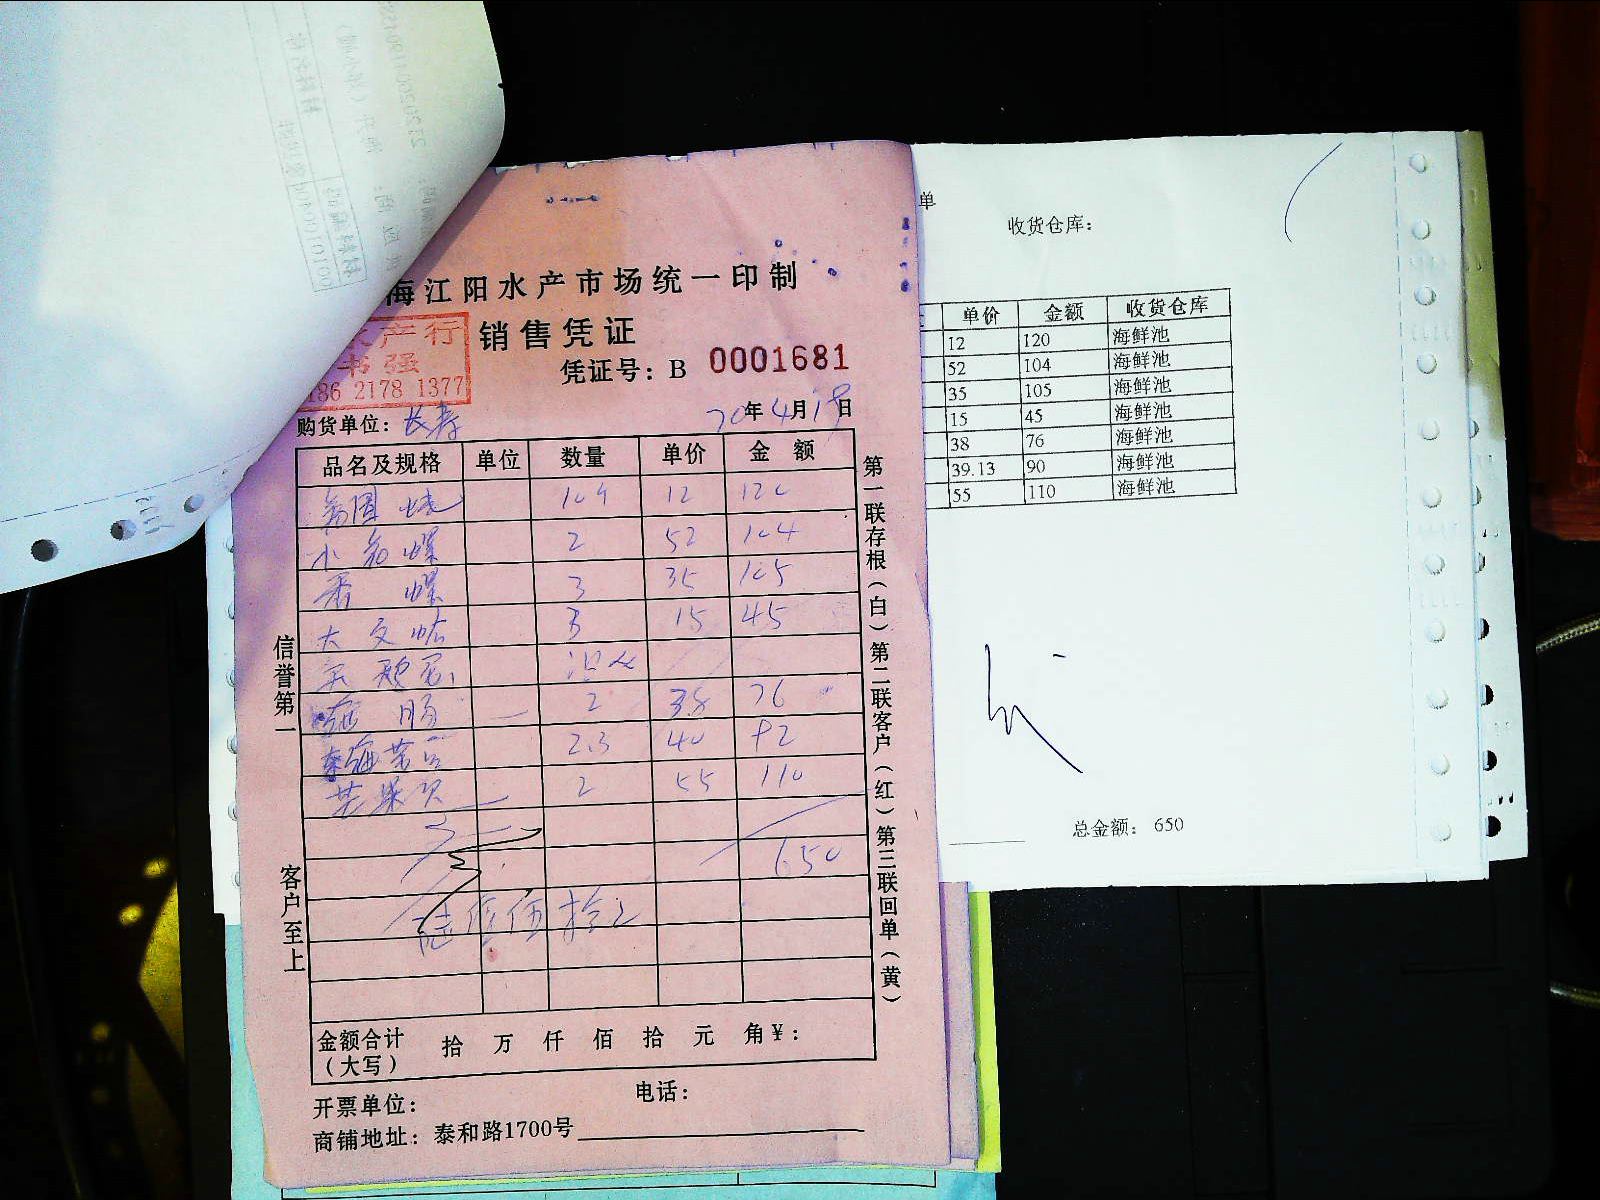 海江阳水产市场统一印制
销售凭证
水产行
书强
186 2178 1377
凭证号：B 0001681
购货单位：长寿
20年4月19日
品名及规格 单位 数量 单价 金额
12 120
小 螺 2 52 104
香 螺 3 35 105
大 文蛤 3 15 45
肠 2 38 76
2.3 40 92
芒果贝 2 55 110
650
陆佰伍拾元
金额合计（大写） 拾 万 仟 佰 拾 元 角 ¥：
开票单位： 电话：
商铺地址：泰和路1700号
信誉第一
客户至上
第一联存根（白）第二联客户（红）第三联回单（黄）
单
收货仓库：
单价 金额 收货仓库
12 120 海鲜池
52 104 海鲜池
35 105 海鲜池
15 45 海鲜池
38 76 海鲜池
39.13 90 海鲜池
55 110 海鲜池
总金额： 650